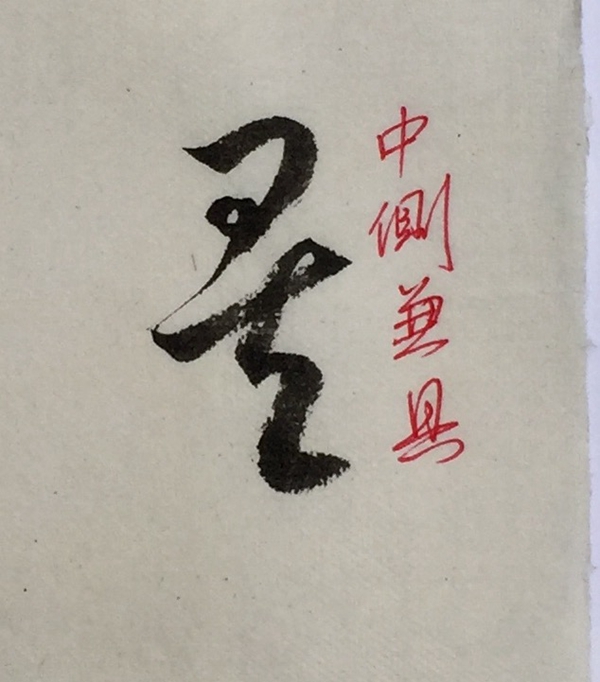 中側兼具